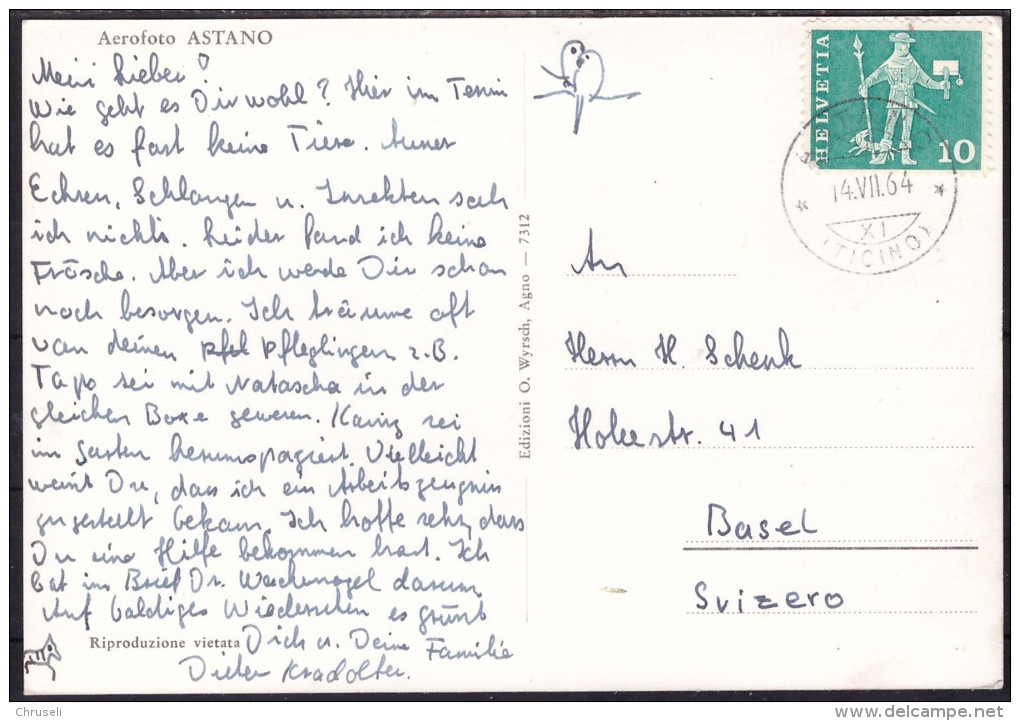 Aerofoto ASTANO
Mein Lieber!
Wie geht es Dir wohl? Hier im Tessin
hat es fast keine Tiere. Ausser
Echsen, Schlangen u. Insekten sah
ich nichts. Leider fand ich keine
Frösche. Aber ich werde Dir schon
noch besorgen. Ich träume oft
von deinen Pfleglingen z.B.
Tapo sei mit Natascha in der
gleichen Boxe gewesen. sei
im Garten herumspaziert. Vielleicht
weisst Du, dass ich ein Arbeitszeugnis
zugestellt bekam. Ich hoffe sehr, dass
Du eine Hilfe bekommen hast. Ich
bat im Brief Dr. Wackernagel darum
Auf baldiges Wiedersehen es grüsst
Riproduzione vietata Dich u. Deine Familie
Dieter Kradolfer.
Edizioni O. Wyrsch, Agno — 7312
HELVETIA
10
14.VII.64
XI
(TICINO)
An
Herrn H. Schenk
Holeestr. 41
Basel
Svizero
© Chruseli